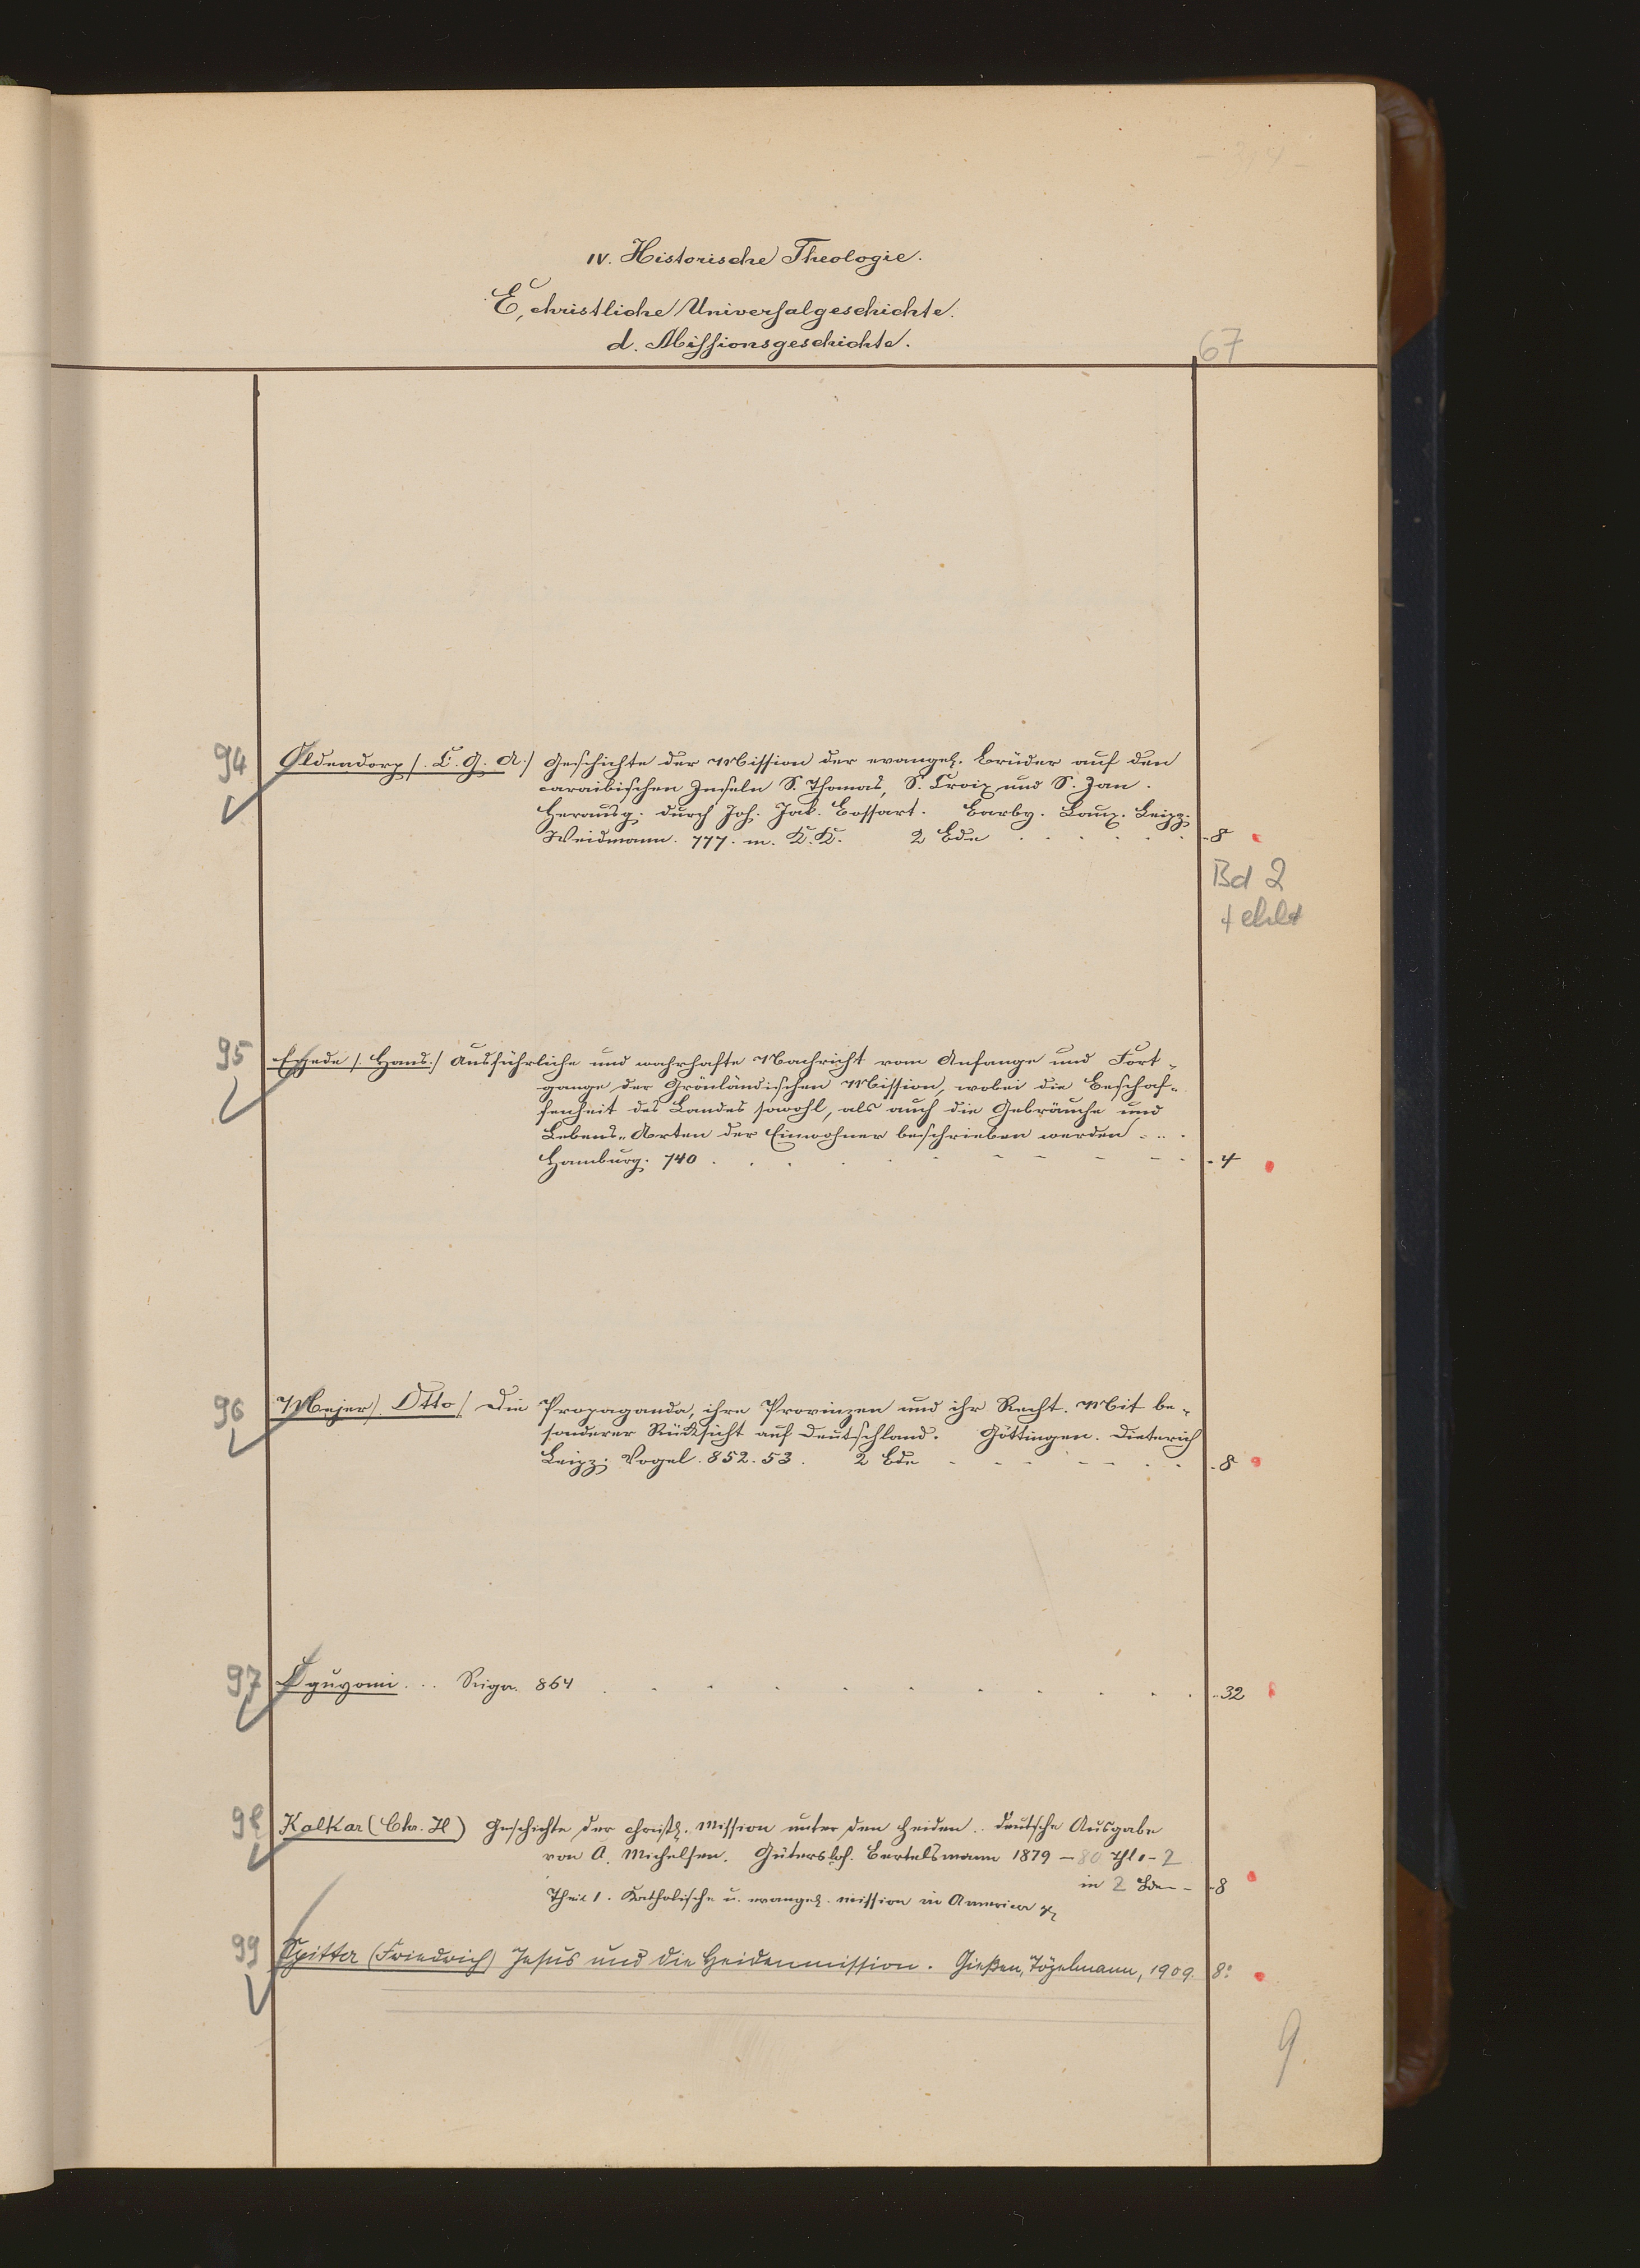 IV. Historische Theologie.
E, christliche Universalgeschichte.
d. Missionsgeschichte.
67
94
Oldendorp /. C. G. A./ Geschichte der Mission der evangel. Brüder auf den
caraibischen Inseln S. Thomas, S. Croix und S. Jan.
Herausg. durch Joh. Jak. Bossart. Barby. Laux. Leipz.
Weidmann. 777. m. K. K. 2 Bde - 8
Bd 2
fehlt
95
Egede /. Hans./ Ausführliche und wahrhafte Nachricht vom Anfange und Fort-
gange der Grönländischen Mission, wobei die Beschaf-
fenheit des Landes sowohl, als auch die Gebräuche und
Lebens-Arten der Einwohner beschrieben werden ...
Hamburg. 740 . 4
96
Mejer /. Otto / Die Propaganda, ihre Provinzen und ihr Recht. Mit be-
sonderer Rücksicht auf Deutschland. Göttingen. Dieterich
Leipz. Vogel. 852. 53. 2 Bde . 8
97
Riga. 864 32
98
Kalkar (Chr. H) Geschichte der christl. Mission unter den Heiden .. deutsche Ausgabe
von A. Michelsen. Gütersloh. Bertelsmann 1879 - 80 Thl 1 - 2
in 2 Bde - 8
Theil 1. Katholische u. evangel. Mission in America
99
Spitta (Friedrich) Jesus und die Heidenmission. Gießen, Töpelmann, 1909. 8°
9